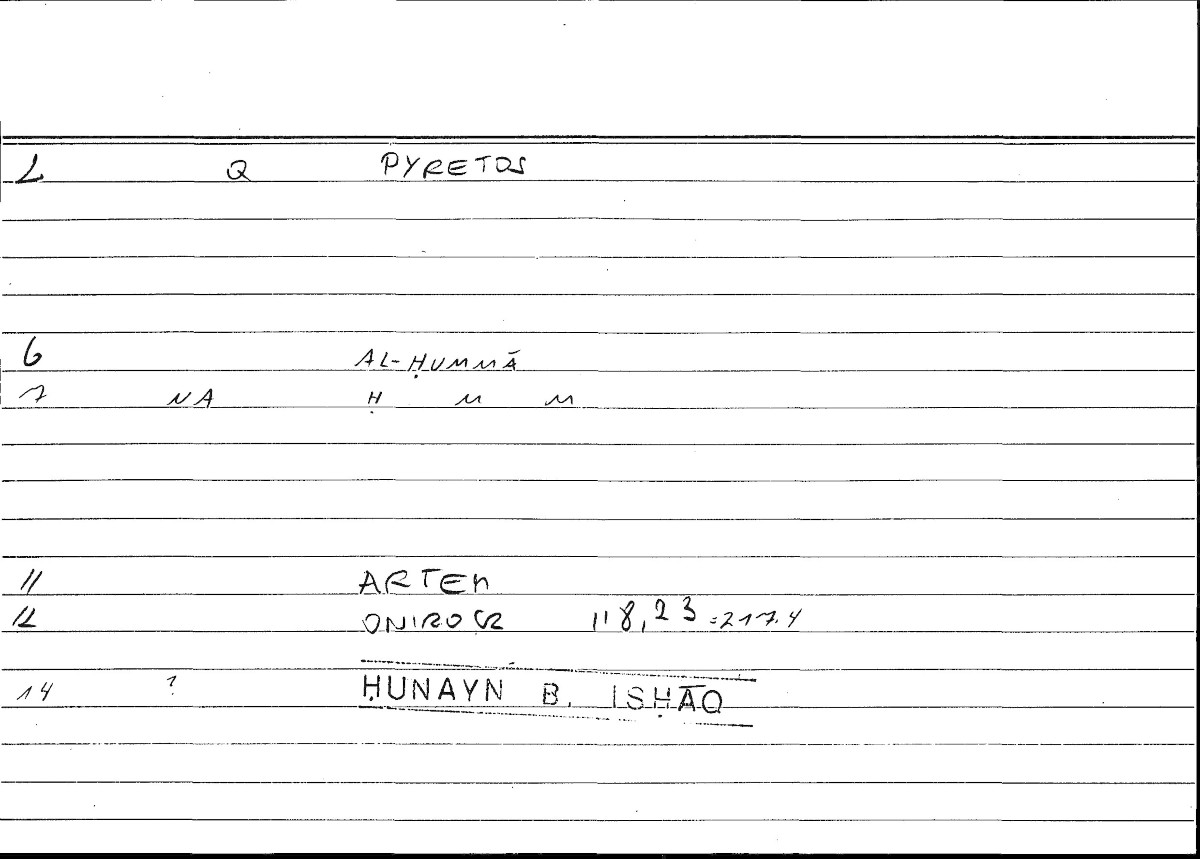 L Q PYRETOS
6 AL-ḤUMMĀ
7 NA Ḥ M M
11 ARTEM
12 ONIROCR 118,23 =217.4
14 ? ḤUNAYN B. ISḤĀQ